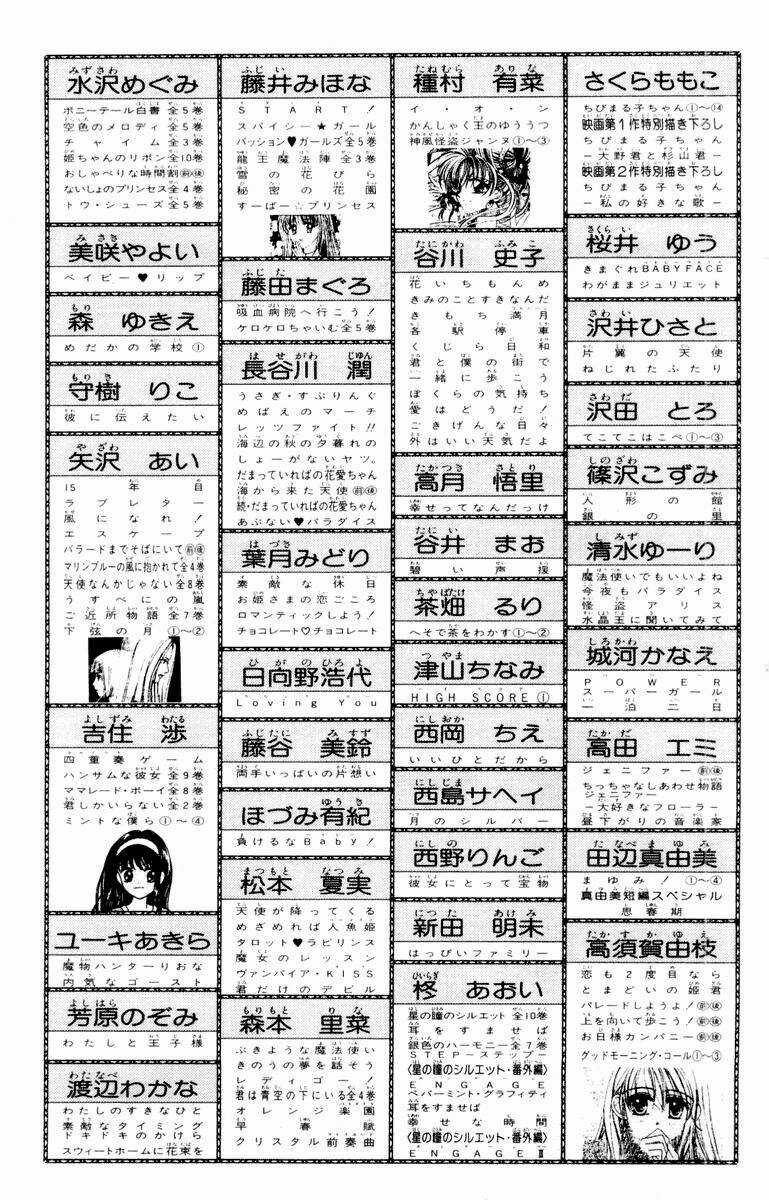 さくらももこ
ちびまる子ちゃん①〜⑭
映画第1作特別描き下ろし
ちびまる子ちゃん
－大野君と杉山君－
映画第2作特別描き下ろし
ちびまる子ちゃん
－私の好きな歌－
さくらい
桜井 ゆう
きまぐれBABY FACE
わがままジュリエット
さわい
沢井ひさと
片翼の天使
ねじれたふたり
さわだ
沢田 とろ
てこてこはこべ①〜③
しのざわ
篠沢こずみ
人形の館
銀の里
しみず
清水ゆーり
魔法使いでもいいよね
今夜もパラダイス
怪盗アリス
水晶玉に聞いてみて
しろかわ
城河かなえ
POWER
スーパーガール
一泊二日
たかだ
高田 エミ
ジェニファー前後
ちっちゃなしあわせ物語
ジェニファー
－大好きなフローラー－
昼下がりの音楽家
たなべまゆみ
田辺真由美
まゆみ！①〜④
真由美短編スペシャル
思春期
たかすかゆえ
高須賀由枝
恋も2度目なら
とまどいの姫君
パレードしようよ！前後
上を向いて歩こう！前後
お日様カンパニー前後
グッドモーニング・コール①〜③
たねむら ありな
種村 有菜
イ・オ・ン
かんしゃく玉のゆううつ
神風怪盗ジャンヌ①〜③
たにかわ ふみこ
谷川 史子
花いちもんめ
きみのことすきなんだ
きもち満月
各駅停車
くじら日和
君と僕の街で
一緒に歩こう
ぼくらの気持ち
愛はどうだ！
ごきげんな日々
外はいい天気だよ
たかつき さとり
高月 悟里
幸せってなんだっけ
たにい
谷井 まお
碧い声援
ちゃばたけ
茶畑 るり
へそで茶をわかす①〜②
つやま
津山ちなみ
HIGH SCORE①
にしおか
西岡 ちえ
いいひとだから
にしじま
西島サヘイ
月のシルバー
にしの
西野りんご
彼女にとって宝物
にった あけみ
新田 明未
はっぴいファミリー
ひいらぎ
柊 あおい
星の瞳のシルエット全10巻
耳をすませば
銀色のハーモニー全7巻
STEP－ステップ－
〈星の瞳のシルエット・番外編〉
ENGAGE
ペパーミント・グラフィティ
耳をすませば
幸せな時間
〈星の瞳のシルエット・番外編〉
ENGAGEⅡ
ふじい
藤井みほな
START！
スパイシー★ガール
パッション♥ガールズ全5巻
龍王魔法陣全3巻
雪の花びら
秘密の花園
すーぱー☆プリンセス
ふじた
藤田まぐろ
吸血病院へ行こう！
ケロケロちゃいむ全5巻
はせがわ じゅん
長谷川 潤
うさぎ・すぷりんぐ
めばえのマーチ
レッツファイト!!
海辺の秋の夕暮れの
しょーがないヤツ。
だまっていればの花愛ちゃん
海から来た天使前後
続・だまっていればの花愛ちゃん
あぶない♥パラダイス
はづき
葉月みどり
素敵な休日
お姫さまの恋ごころ
ロマンティックしよう！
チョコレート♡チョコレート
ひがのひろよ
日向野浩代
Loving You
ふじたに みすず
藤谷 美鈴
両手いっぱいの片想い
ゆうき
ほづみ有紀
負けるなBaby！
まつもと なつみ
松本 夏実
天使が降ってくる
めざめれば人魚姫
タロット♥ラビリンス
魔女のレッスン
ヴァンパイア・KISS
君だけのデビル
もりもと りな
森本 里菜
ぶきような魔法使い
きのうの夢を話そう
レディゴー！
君は青空の下にいる全4巻
オレンジ楽園
早春賦
クリスタル前奏曲
みずさわ
水沢めぐみ
ポニーテール白書全5巻
空色のメロディ全5巻
チャイム全3巻
姫ちゃんのリボン全10巻
おしゃべりな時間割前後
ないしょのプリンセス全4巻
トウ・シューズ全5巻
みさき
美咲やよい
ベイビー♥リップ
もり
森 ゆきえ
めだかの学校①
もりき
守樹 りこ
彼に伝えたい
やざわ
矢沢 あい
15年目
ラブレター
風になれ！
エスケープ
バラードまでそばにいて前後
マリンブルーの風に抱かれて全4巻
天使なんかじゃない全8巻
うすべにの嵐
ご近所物語全7巻
下弦の月①〜②
よしずみ わたる
吉住 渉
四重奏ゲーム
ハンサムな彼女全9巻
ママレード・ボーイ全8巻
君しかいらない全2巻
ミントな僕ら①〜④
ユーキあきら
魔物ハンターりおな
内気なゴースト
よしはら
芳原のぞみ
わたしと王子様
わたなべ
渡辺わかな
わたしのすきなひと
素敵なタイミング
ドキドキのかけら
スウィートホームに花束を